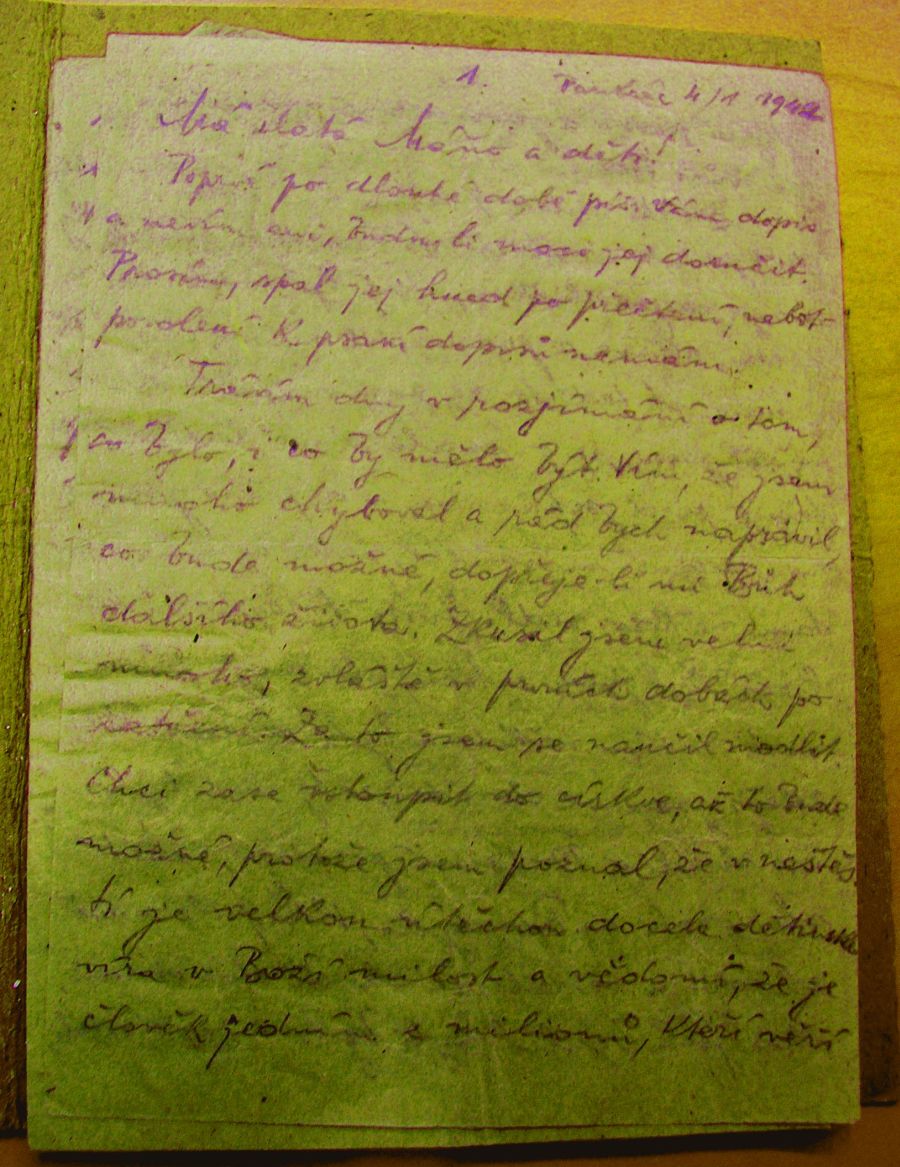 1. Pankrác 4/1 1944
Má zlatá Máňo a děti!
Poprvé po dlouhé době píši Vám dopis
a nevím ani, budou-li moci jej doručit.
Prosím, spal jej hned po přečtení, neboť
povolení k psaní dopisů nemám.
Trávím dny v rozjímání o tom,
co bylo, i co by mělo být. Vím, že jsem
mnoho chyboval a rád bych napravil,
co bude možné, dopřeje-li mi Bůh
dalšího života. Zkusil jsem velmi
mnoho, zvláště v prvních dobách po
zatčení. Za to jsem se naučil modlit.
Chci zase vstoupit do církve, až to bude
možné, protože jsem poznal, že v neštěs
tí je velkou útěchou docela dětinská
víra v Boží milost a vědomí, že je
člověk jedním z milionů, kteří věří